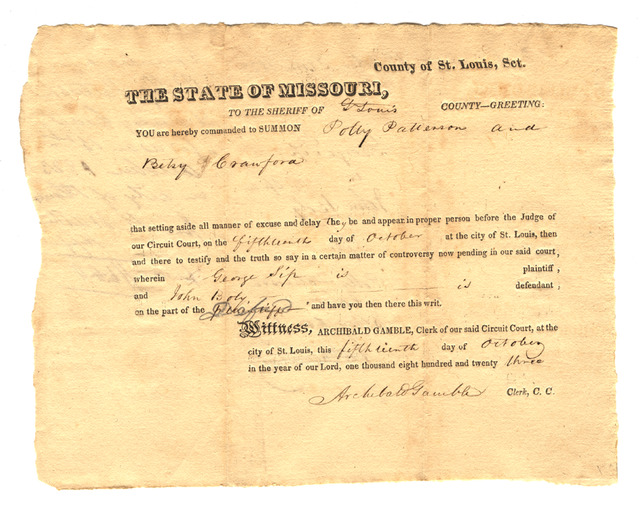 County of St. Louis, Sct.
THE STATE OF MISSOURI,
TO THE SHERIFF OF St Louis COUNTY—GREETING:
YOU are hereby commanded to SUMMON Polly Patterson and
Betsy Crawford
that setting aside all manner of excuse and delay they be and appear in proper person before the Judge of
our Circuit Court, on the fifthteenth day of October at the city of St. Louis, then
and there to testify and the truth so say in a certain matter of controversy now pending in our said court,
wherein George Sip is plaintiff,
and John Boly is defendant,
on the part of the Plaintiff and have you then there this writ.
Witness, ARCHIBALD GAMBLE, Clerk of our said Circuit Court, at the
city of St. Louis, this fifthteenth day of October
in the year of our Lord, one thousand eight hundred and twenty three
Archibald Gamble Clerk, C. C.